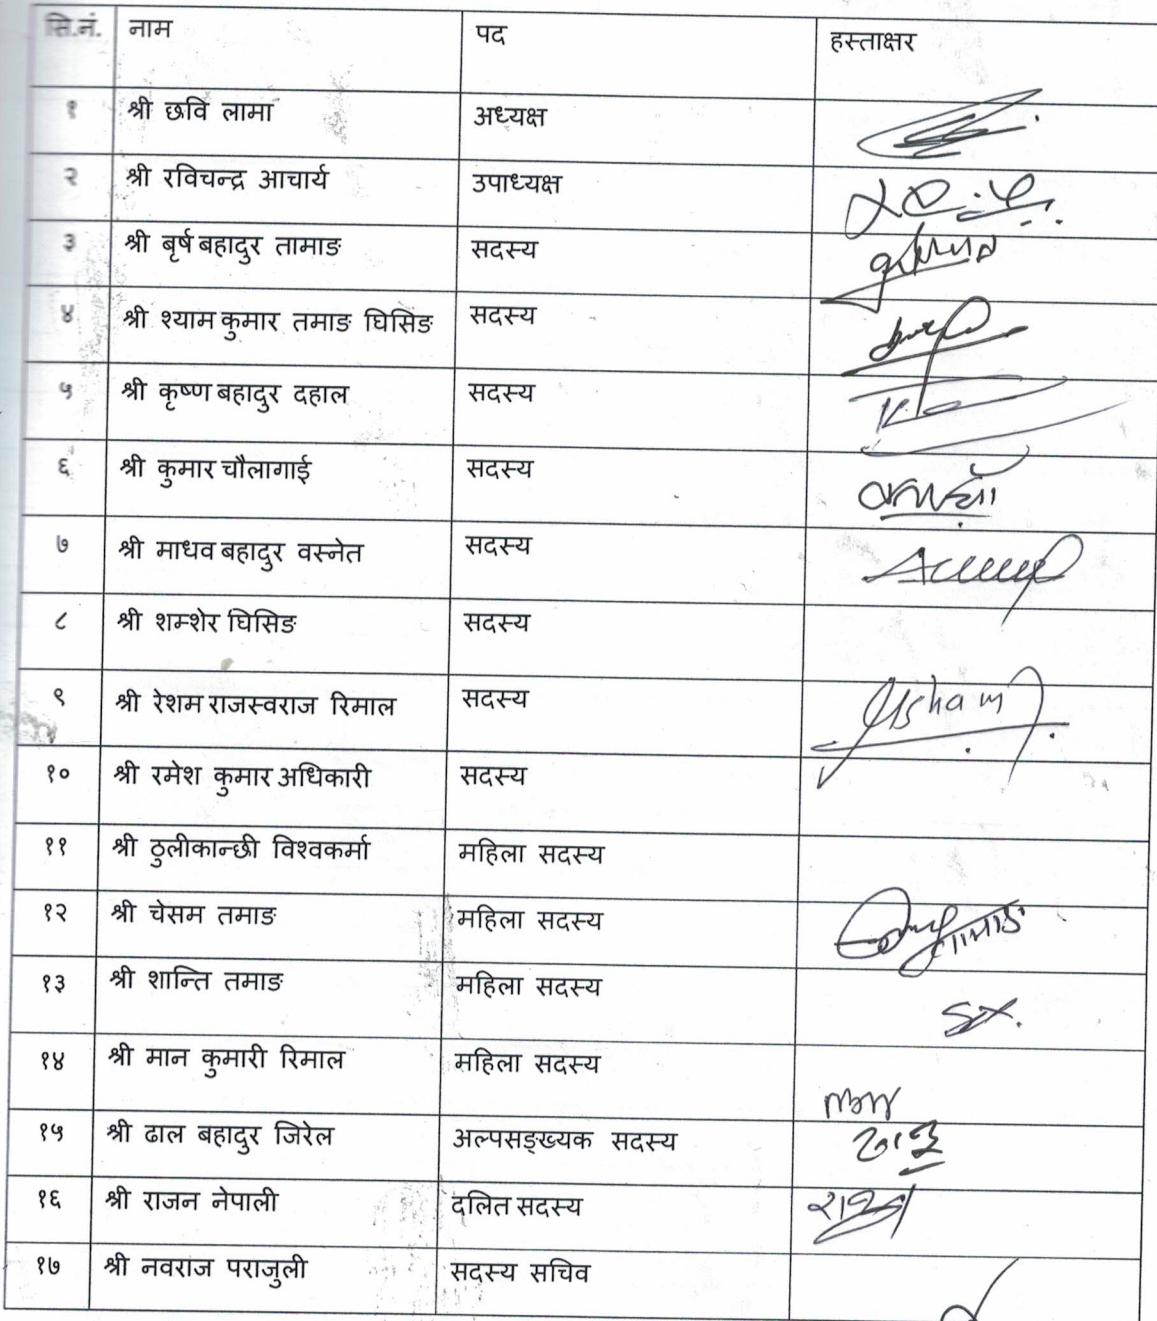 सि.नं. नाम पद हस्ताक्षर
१ श्री छवि लामा अध्यक्ष
२ श्री रविचन्द्र आचार्य उपाध्यक्ष
३ श्री बृर्ष बहादुर तामाङ सदस्य
४ श्री श्याम कुमार तमाङ घिसिङ सदस्य
५ श्री कृष्ण बहादुर दहाल सदस्य
६ श्री कुमार चौलागाई सदस्य
७ श्री माधव बहादुर वस्नेत सदस्य
८ श्री शम्शेर घिसिङ सदस्य
९ श्री रेशम राजस्वराज रिमाल सदस्य
१० श्री रमेश कुमार अधिकारी सदस्य
११ श्री ठुलीकान्छी विश्वकर्मा महिला सदस्य
१२ श्री चेसम तमाङ महिला सदस्य
१३ श्री शान्ति तमाङ महिला सदस्य
१४ श्री मान कुमारी रिमाल महिला सदस्य
१५ श्री ढाल बहादुर जिरेल अल्पसङ्ख्यक सदस्य
१६ श्री राजन नेपाली दलित सदस्य
१७ श्री नवराज पराजुली सदस्य सचिव